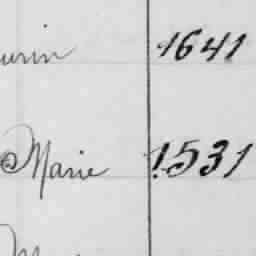 urin 1641
Marie 1531